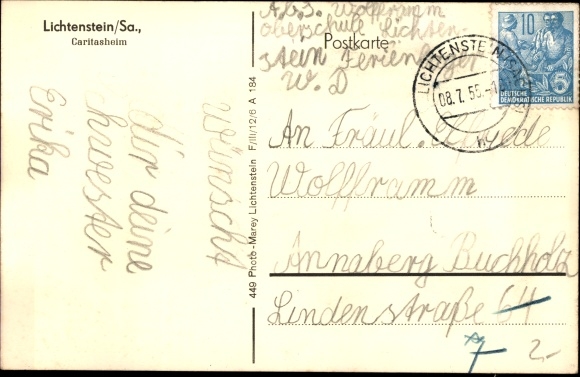 Lichtenstein/Sa.,
Caritasheim
wünscht
dir deine
Schwester
Erika
449 Photo-Marey Lichtenstein F/III/12/6 A 184
Postkarte
Wolfframm
oberschule Lichten-
stein Ferienlager
W. D
10
5
DEUTSCHE
DEMOKRATISCHE REPUBLIK
LICHTENSTEIN
08.7.55.
An Fräul.
Wolfframm
Annaberg Buchholz
Lindenstraße 64
7 2.-